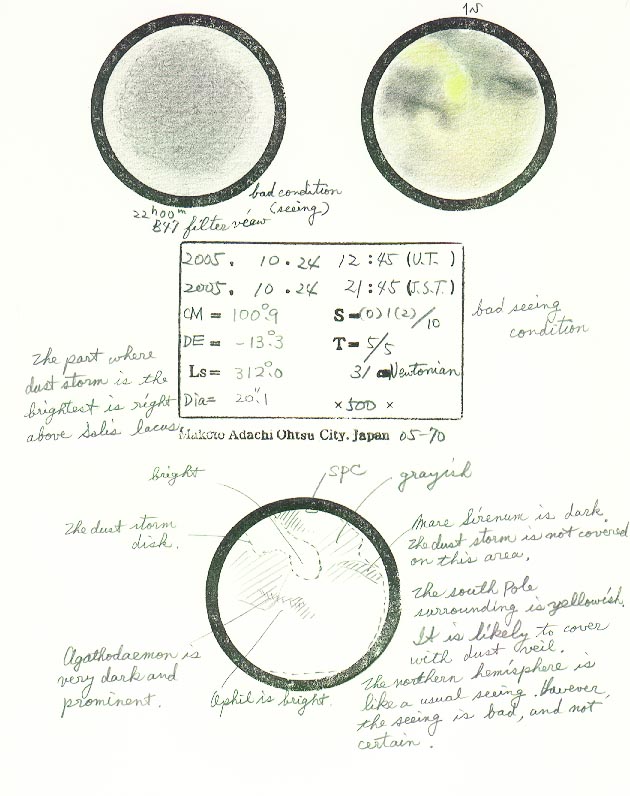 bad condition
(seeing)
22h00m
B47 filter view
2005. 10.24 12:45 (U.T.)
2005. 10.24 21:45 (J.S.T.)
CM = 100°.9 S=(0)1(2)/10
DE = -13°.3 T=5/5
Ls= 312°.0 31 Newtonian
Dia= 20".1 ×500 ×
Makoto Adachi Ohtsu City. Japan 05-70
bad seeing
condition
The part where
dust storm is the
brightest is right
above Solis lacus.
bright
SPC
grayish
The dust storm
disk.
Mare Sirenum is dark.
The dust storm is not covered
on this area.
The south Pole
surrounding is yellowish.
It is likely to cover
with dust veil.
The northern hemisphere is
like a usual seeing. However,
the seeing is bad, and not
certain.
Agathodaemon is
very dark and
prominent.
Ophil is bright.